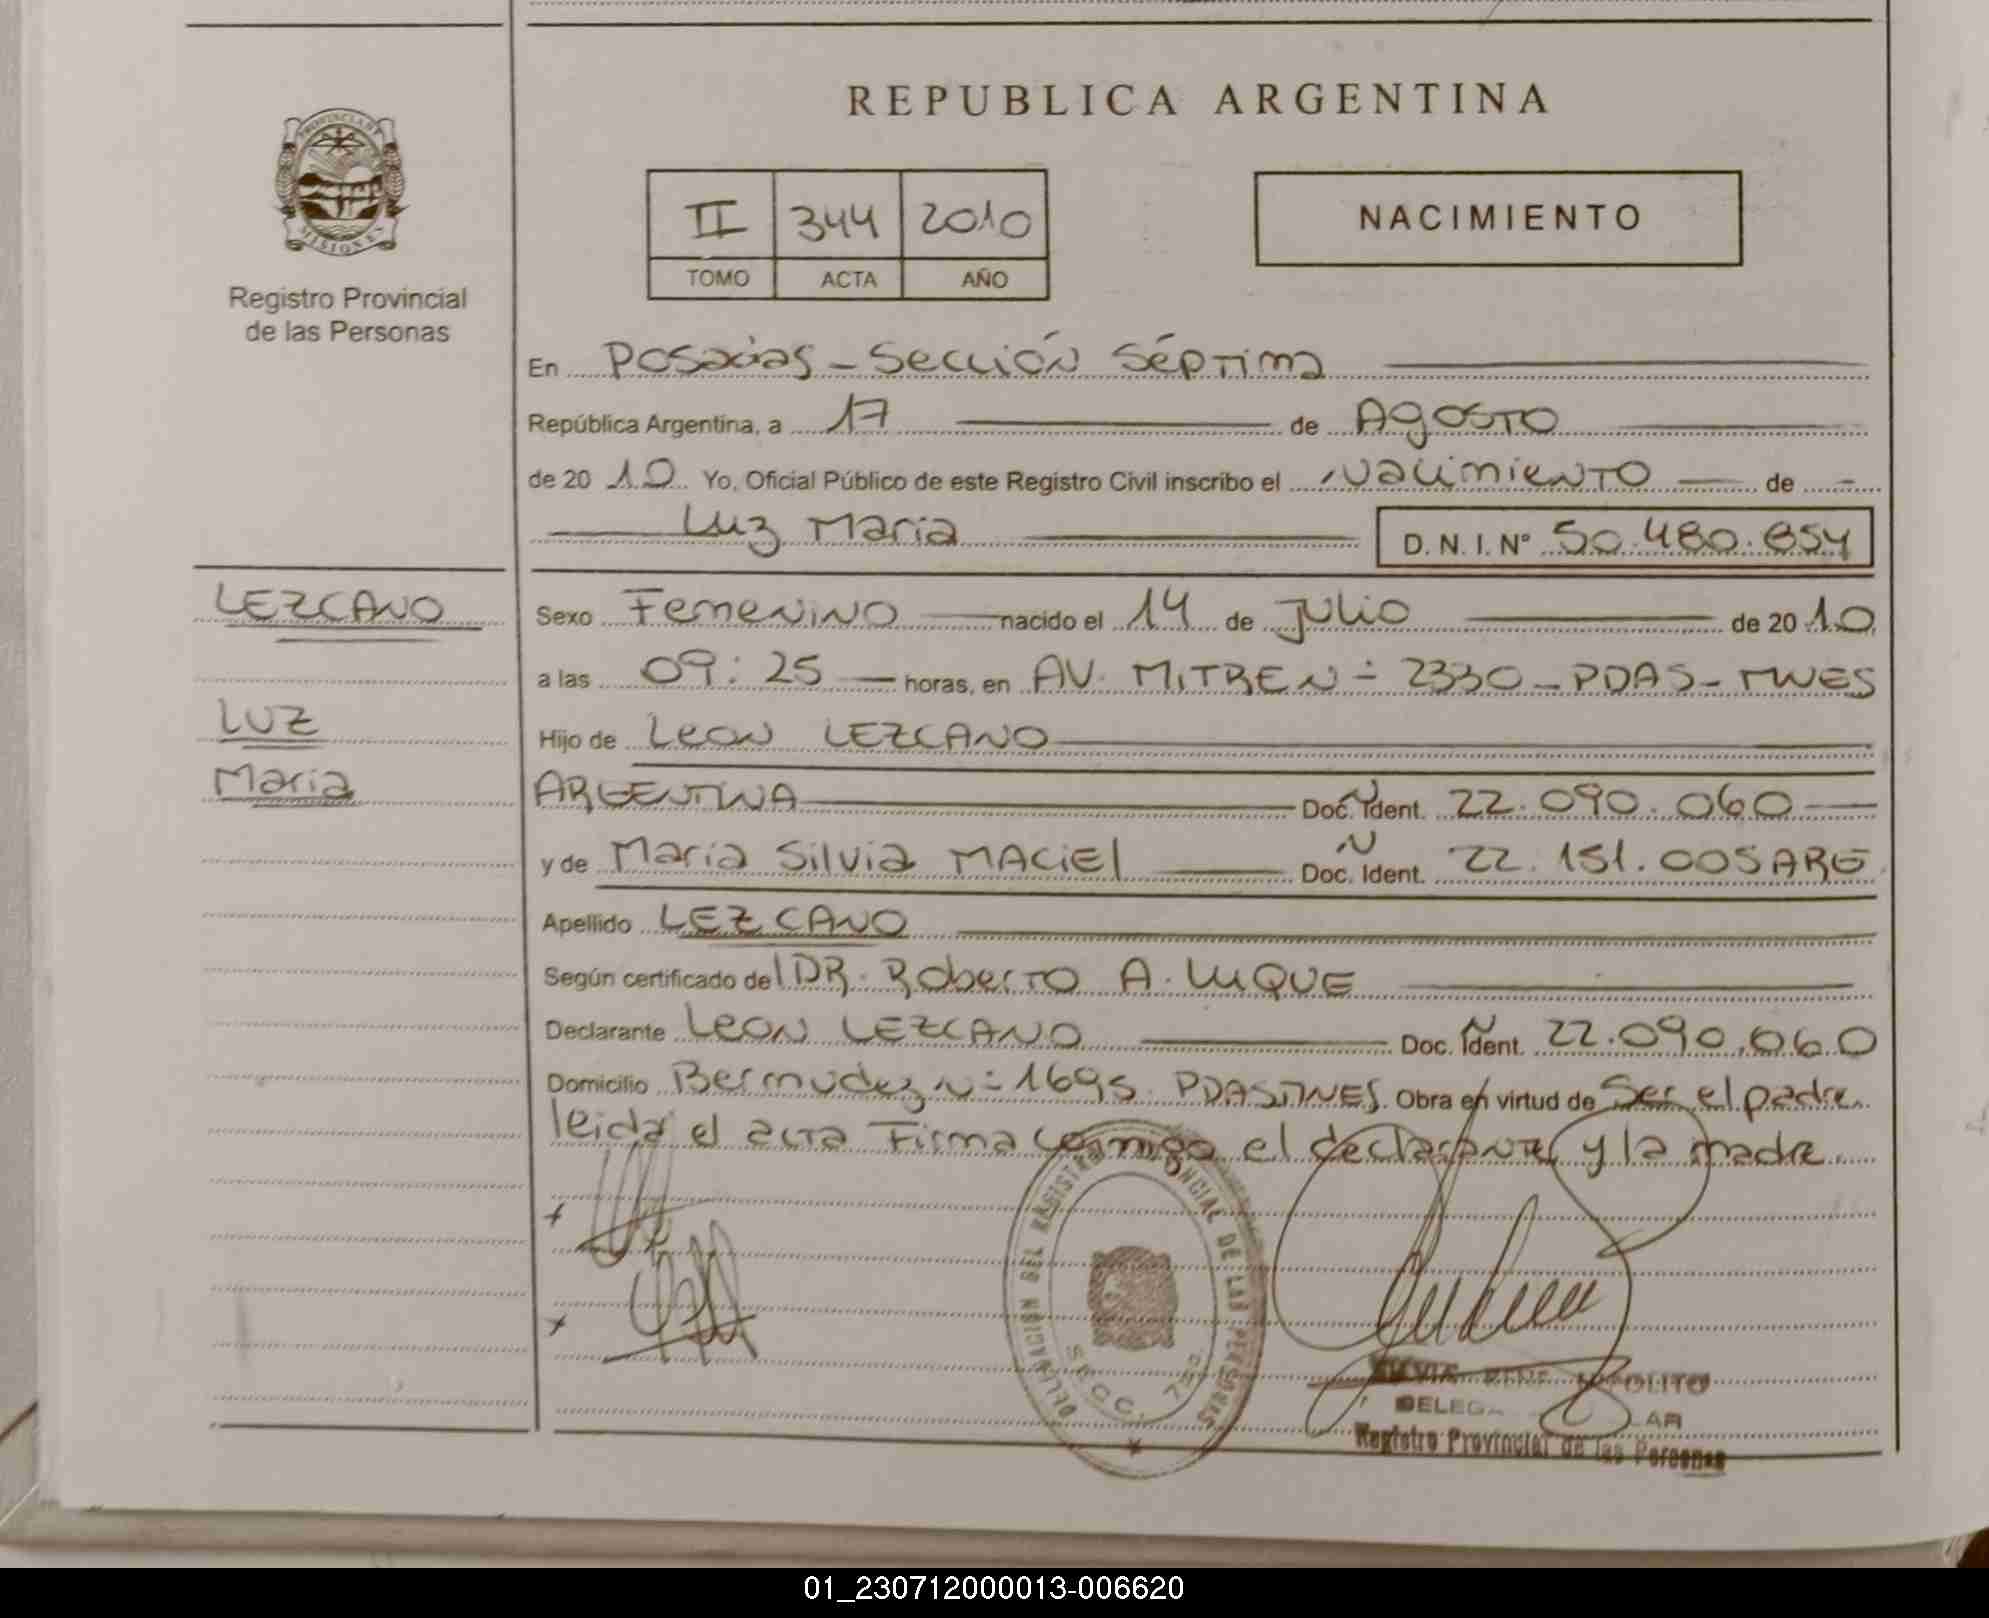 REPUBLICA ARGENTINA
PROVINCIA DE MISIONES
Registro Provincial
de las Personas
II 344 2010
TOMO ACTA AÑO
NACIMIENTO
En Posadas - Sección Séptima
República Argentina, a 17 de Agosto
de 20 10 Yo, Oficial Público de este Registro Civil inscribo el Nacimiento de
Luz Maria D.N.I.N° 50.480.854
LEZCANO
LUZ
Maria
Sexo Femenino nacido el 14 de Julio de 20 10
a las 09:25 horas, en AV. MITRE N- 2330 - PDAS - MNES
Hijo de Leon LEZCANO
ARGENTINA Doc. Ident. 22.090.060
y de Maria Silvia MACIEL Doc. Ident. 22.151.005 ARG
Apellido LEZCANO
Según certificado del DR. Roberto A. LUQUE
Declarante Leon LEZCANO Doc. Ident. 22.090.060
Domicilio Bermudez N- 1695 PDAS MNES. Obra en virtud de Ser el padre
leida el acta Firma conmigo el declarante y la madre
DELEGACION DEL REGISTRO PROVINCIAL DE LAS PERSONAS
SECC. 7ma.
Registro Provincial de las Personas
01_230712000013-006620